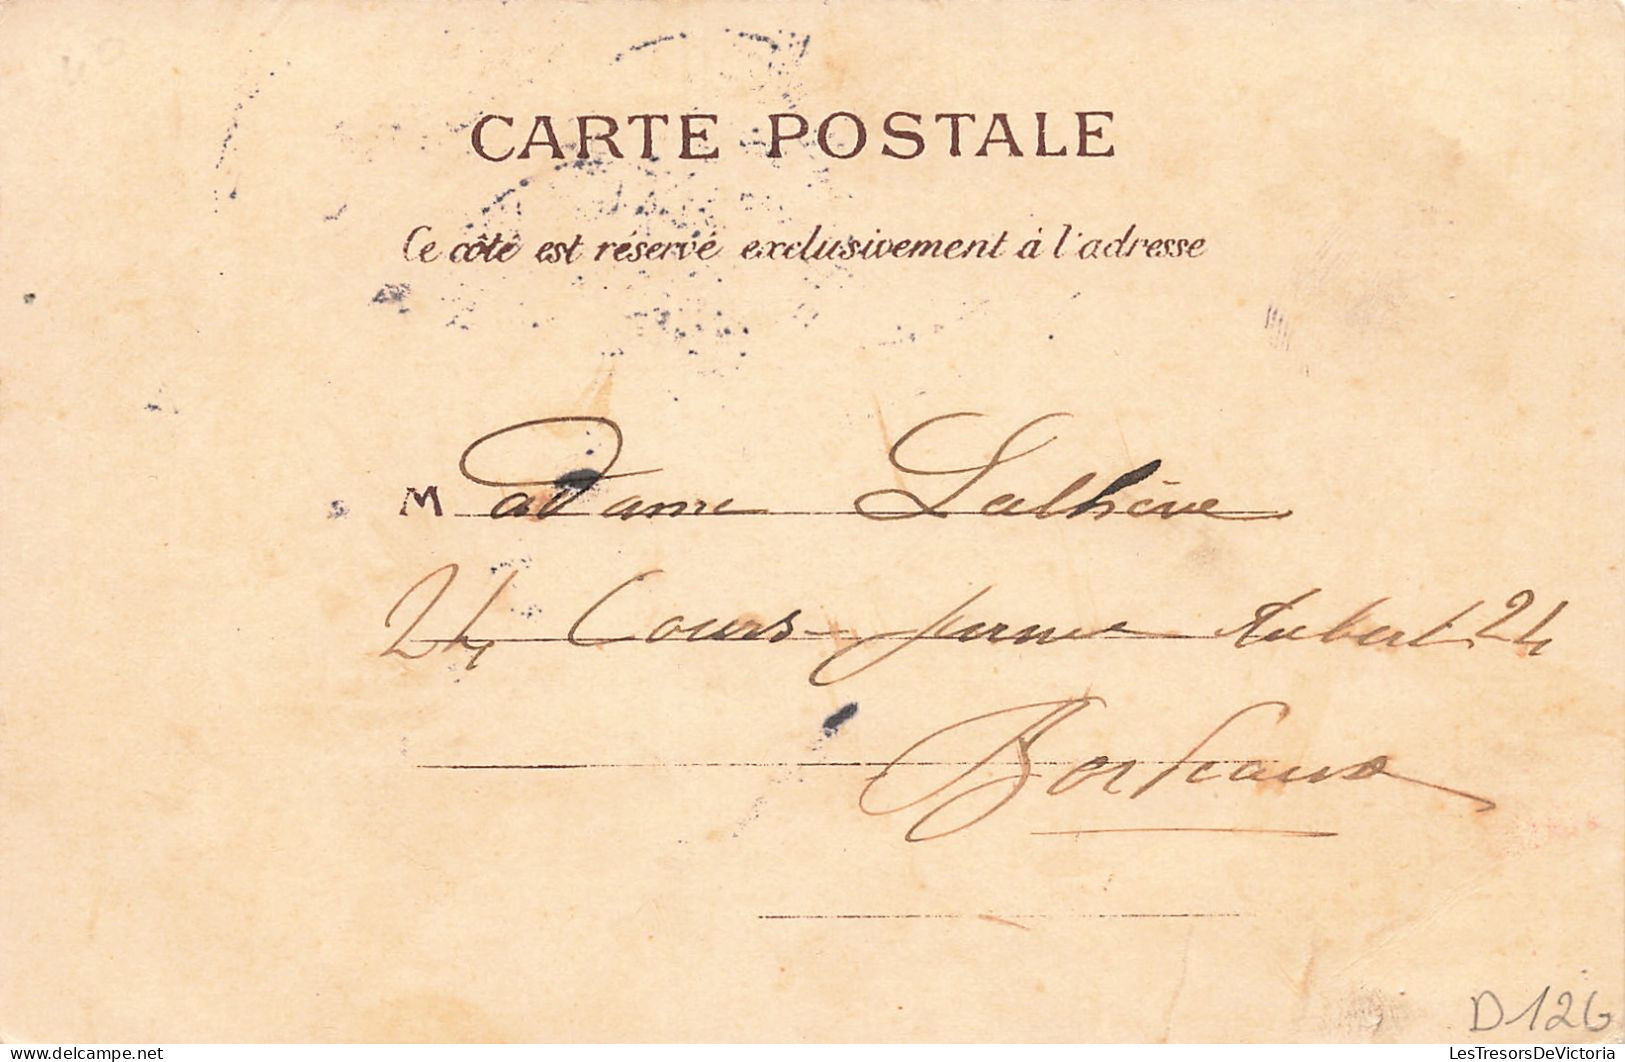 CARTE POSTALE
Ce côté est réservé exclusivement à l'adresse
Madame Lalhève
24 Cours Journu Aubert 24
Bordeaux
D126
LesTresorsDeVictoria
www.delcampe.net